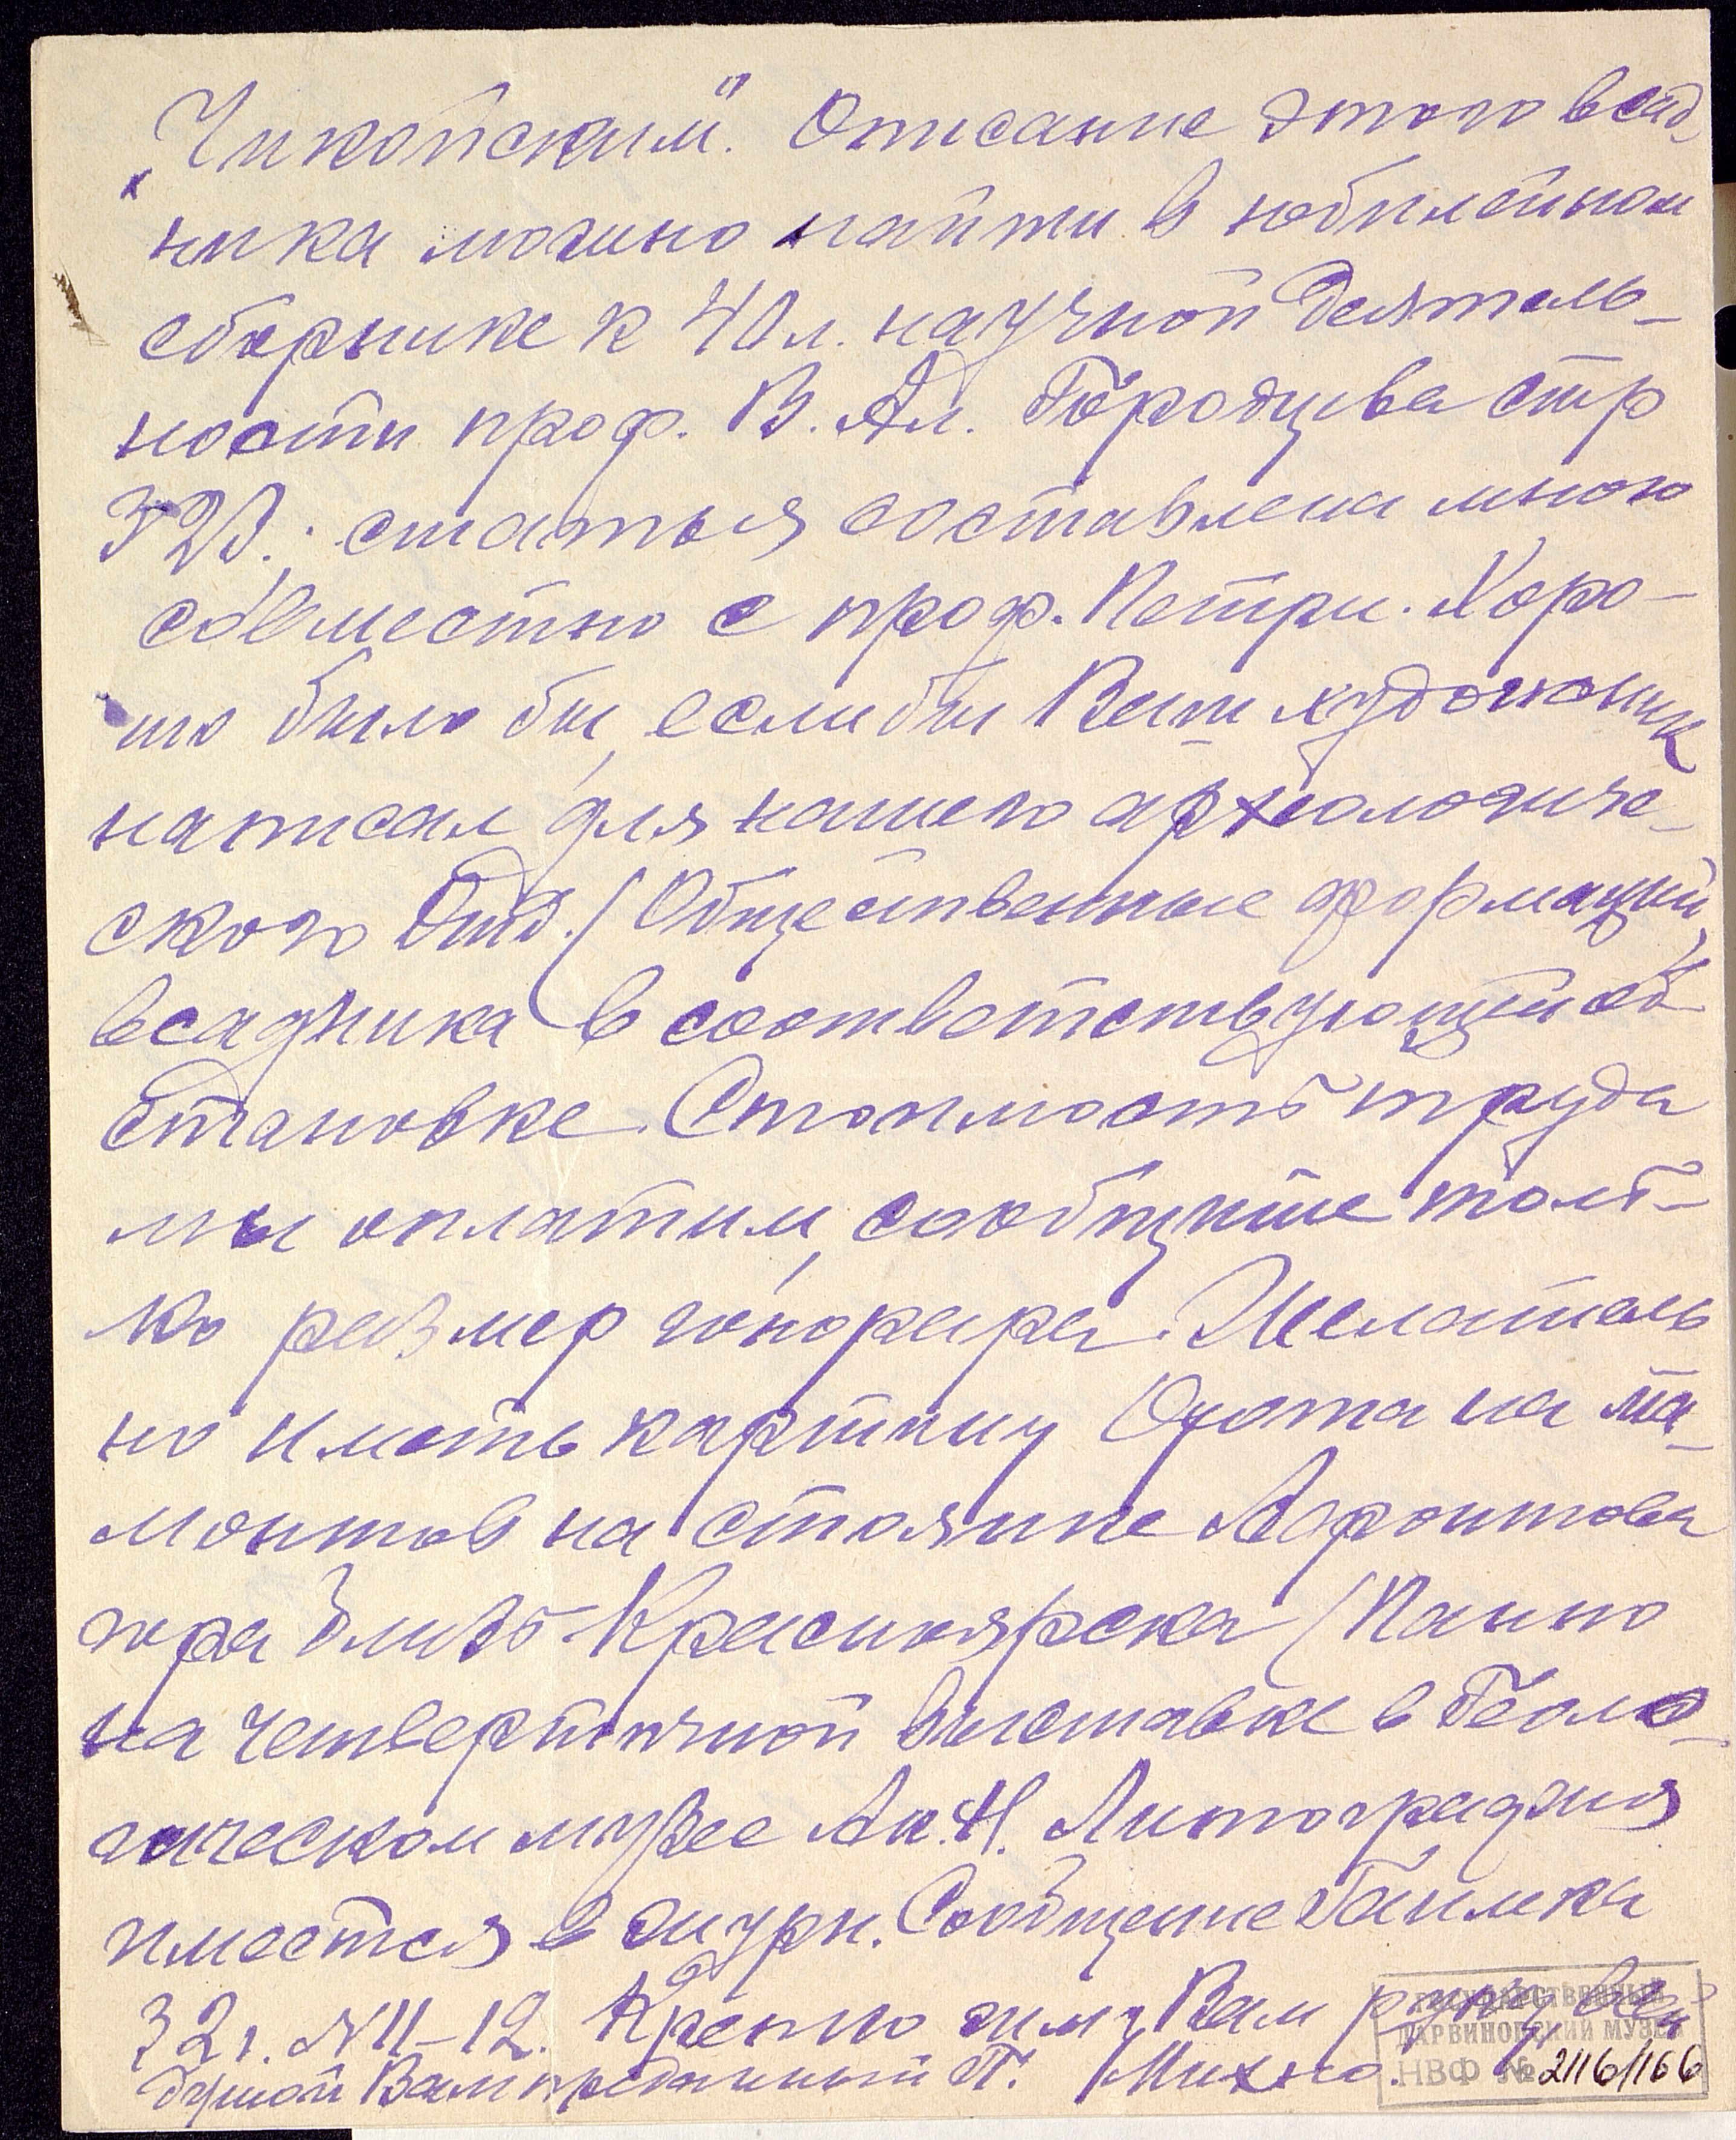 „Чикойским". Описание этого всад-
ника можно найти в юбилейном
сборнике к 40 л. научной деятель-
ности проф. В. Ал. Городцова стр
323.: статья составлена мною
совместно с проф. Петри. Хоро-
шо было бы, если бы Ваш художник
написал для нашего археологиче-
ского Отд. (Общественные формации)
всадника в соответствующей об-
становке. Стоимость труда
мы оплатим, сообщите толь-
ко размер гонорара. Желатель
но иметь картину Охота на ма-
монтов на стоянке Афонтова
гора близь Красноярска (Панно
на четвертичной выставке в Геоло-
гическом музее Ак. Н. Литография
имеется в журн. Сообщение Гаимка
32 г. № 11-12. Крепко жму Вам руку, всей
душой Вам преданный П. Михно.
ГОСУДАРСТВЕННЫЙ
ДАРВИНОВСКИЙ МУЗЕЙ
НВФ № 2116/166